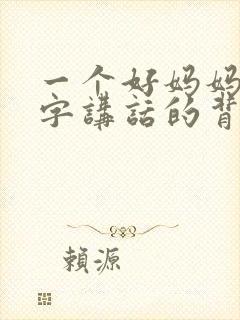 一个好妈妈
字講話的背
賴源